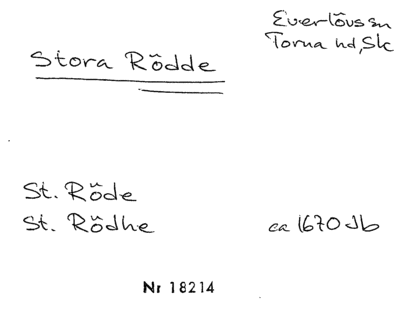 Everlöv sn
Torna hd, Sk
Stora Rödde
St. Röde
St. Rödhe ca 1670 Jb
Nr 18214